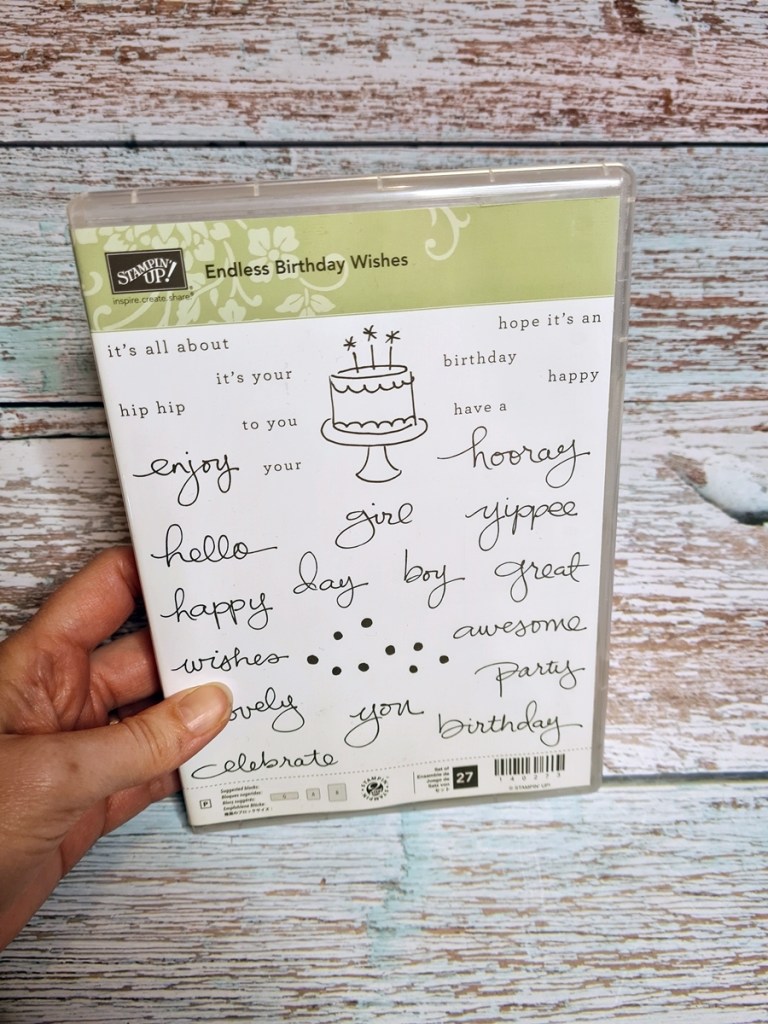 STAMPIN' UP!®
inspire.create.share®
Endless Birthday Wishes
hope it's an
it's all about
birthday
it's your
happy
hip hip
have a
to you
hooray
enjoy
your
girl
yippee
hello
day
boy
great
happy
awesome
wishes
party
ovely
you
birthday
celebrate
P
Suggested blocks:
Set of
27
140273
© STAMPIN' UP!